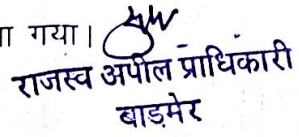 ा गया।
राजस्व अपील प्राधिकारी
बाड़मेर